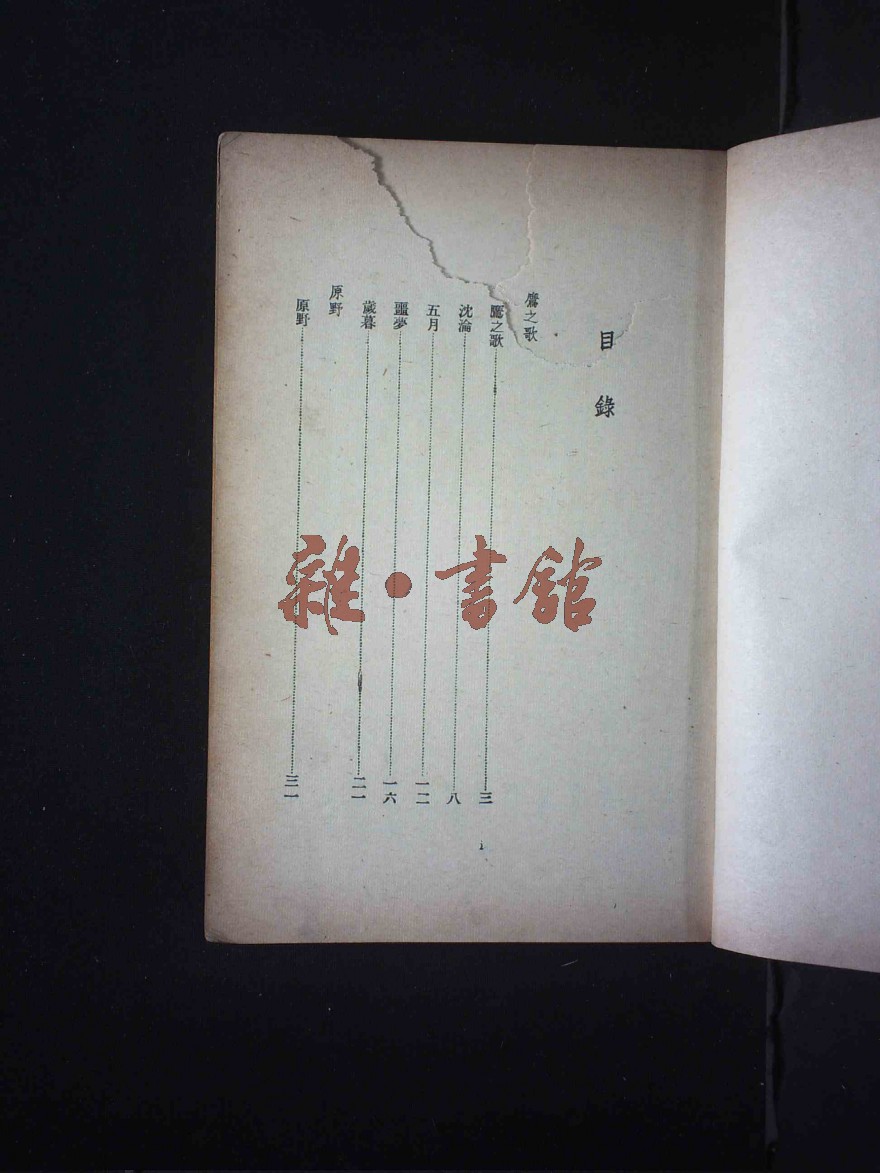 目錄
鷹之歌
鷹之歌三
沈淪八
五月一二
噩夢一六
歲暮二一
原野
原野三一
1
雜·書館